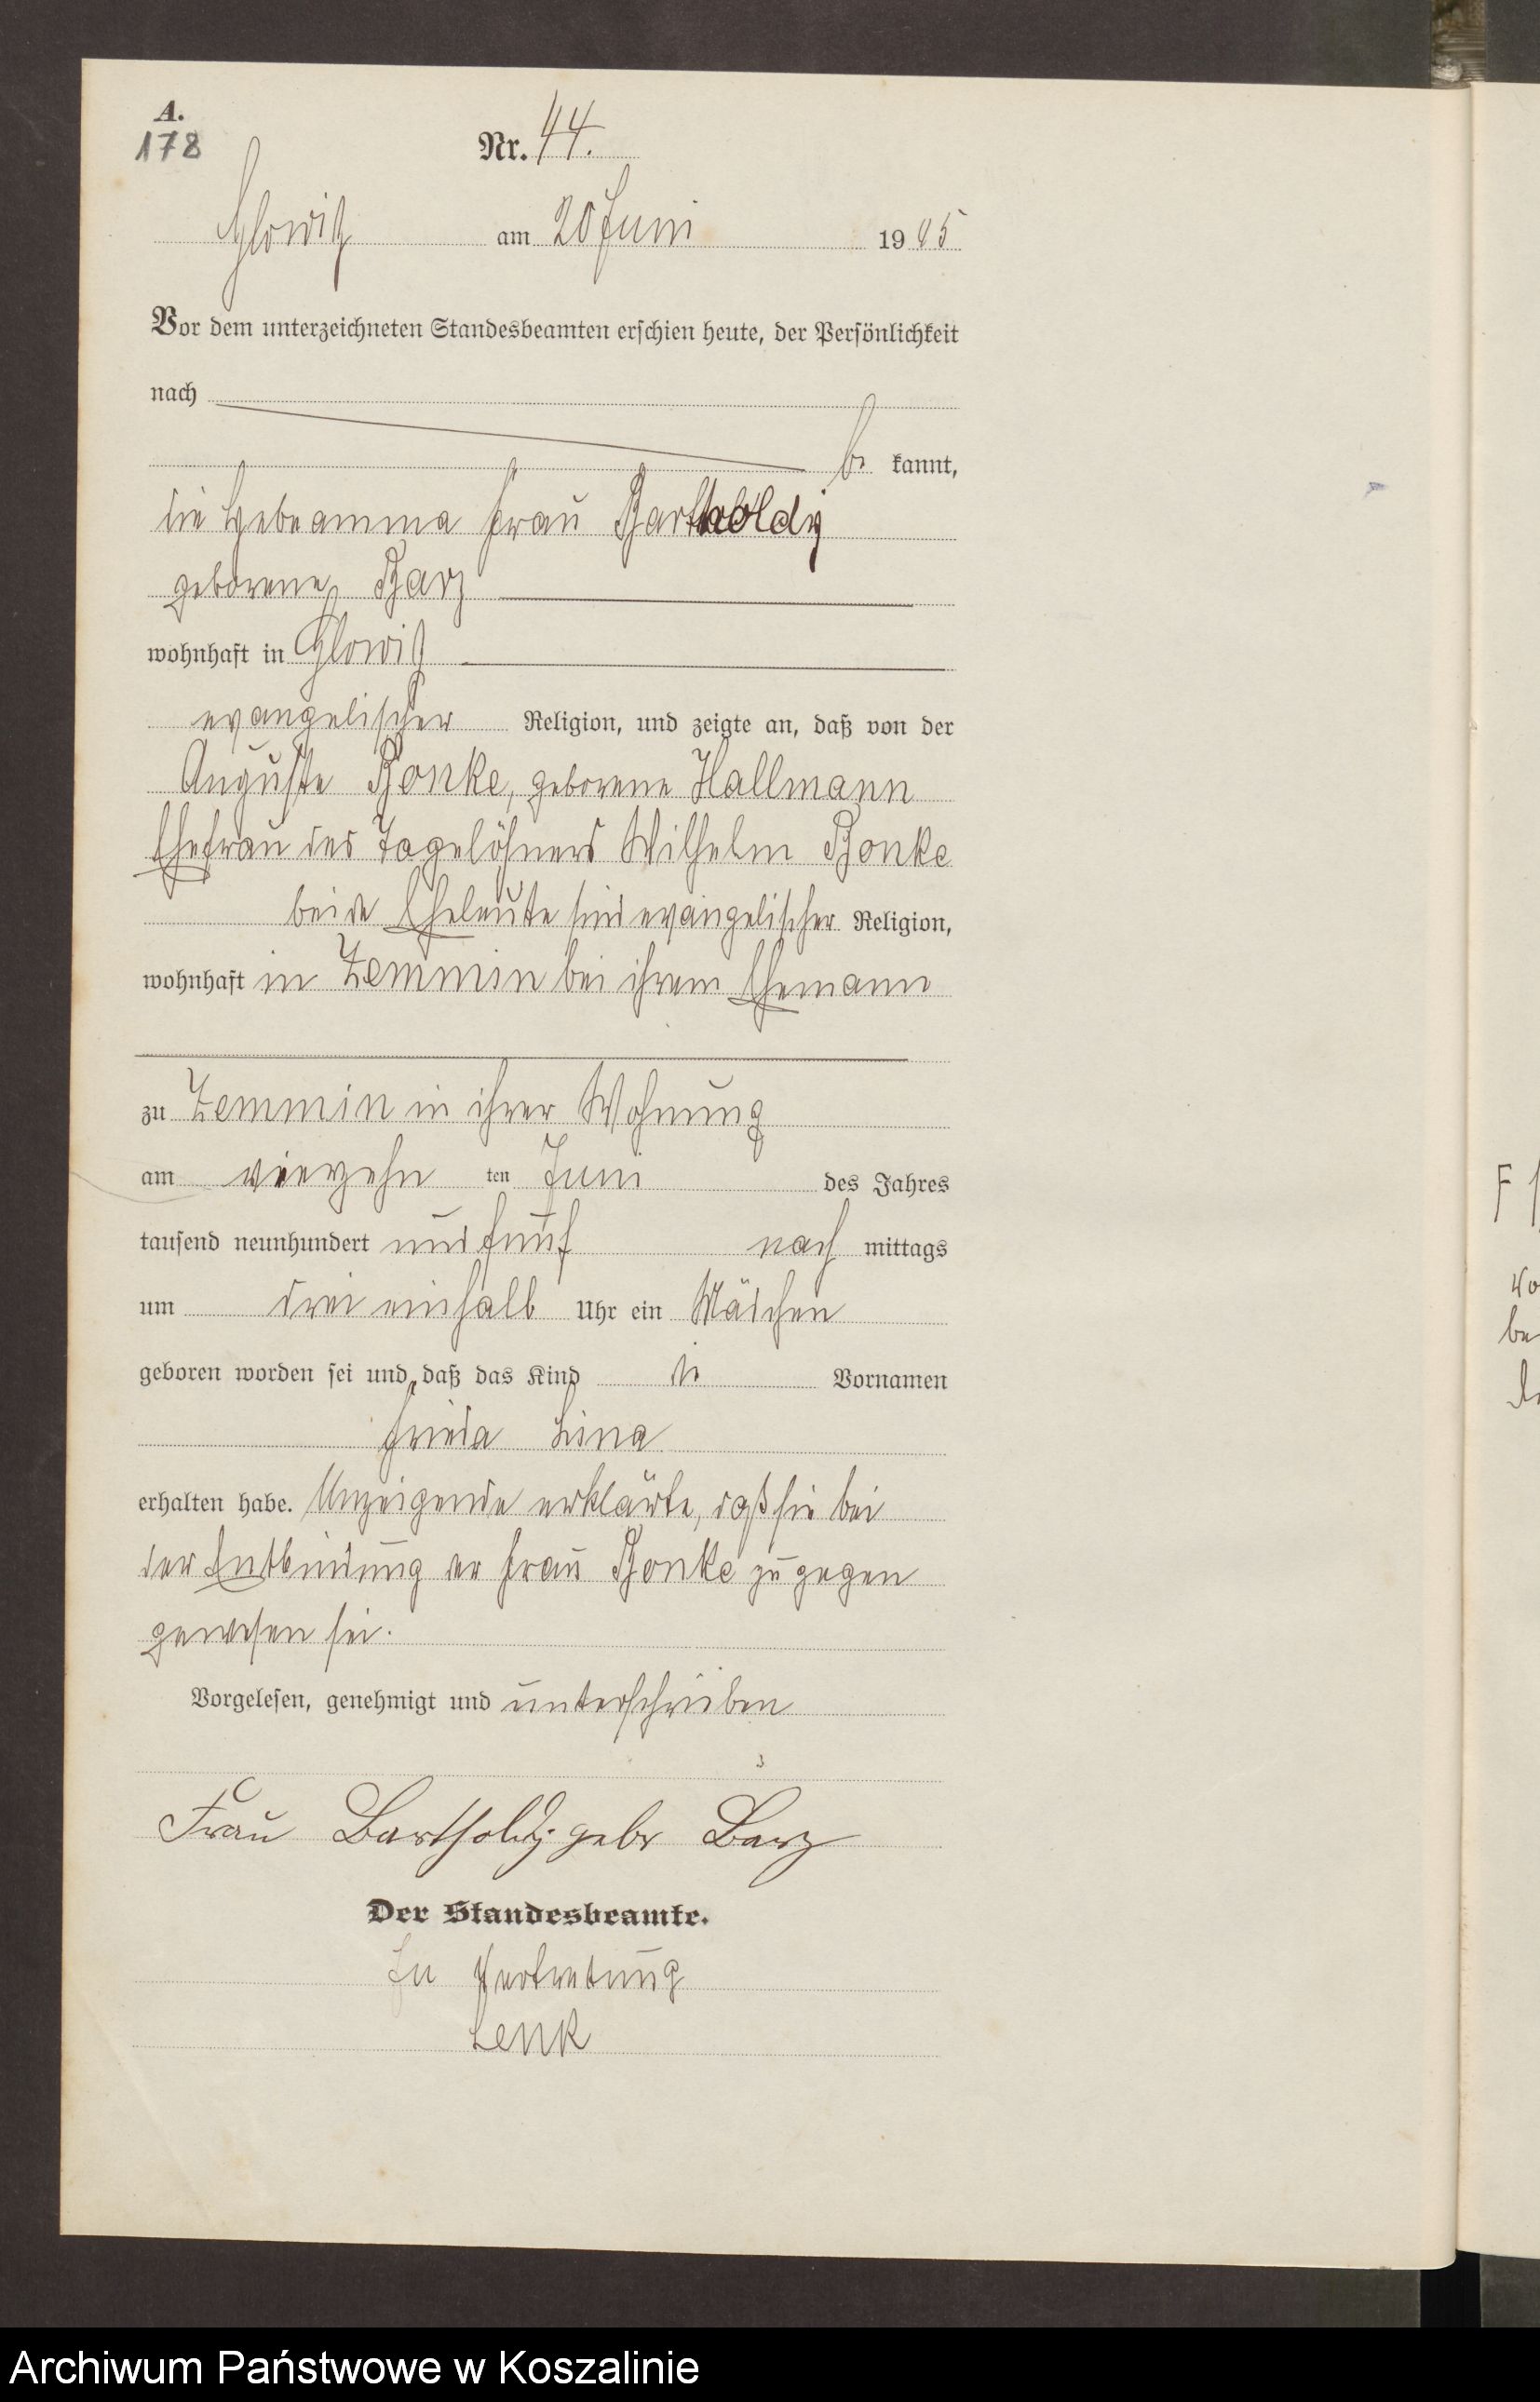 A.
178
Nr. 44.
Glowitz am 20 Juni 1905
Vor dem unterzeichneten Standesbeamten erschien heute, der Persönlichkeit
nach
be kannt,
die Hebeamme Frau Bartholdy
geborene Barz
wohnhaft in Glowitz
evangelischer Religion, und zeigte an, daß von der
Auguste Bonke, geborene Hallmann
Ehefrau des Tagelöhners Wilhelm Bonke
beide Eheleute sind evangelischer Religion,
wohnhaft in Zemmin bei ihrem Ehemann
zu Zemmin in ihrer Wohnung
am vierzehn ten Juni des Jahres
tausend neunhundert und fünf nach mittags
um drei einhalb Uhr ein Mädchen
geboren worden sei und daß das Kind die Vornamen
Frieda Lina
erhalten habe. Anzeigende erklärte, daß sie bei
der Entbindung der Frau Bonke zugegen
gewesen sei.
Vorgelesen, genehmigt und unterschrieben
Frau Bartholdy gebr Barz
Der Standesbeamte.
In Vertretung
Lenk
F
be
Archiwum Państwowe w Koszalinie